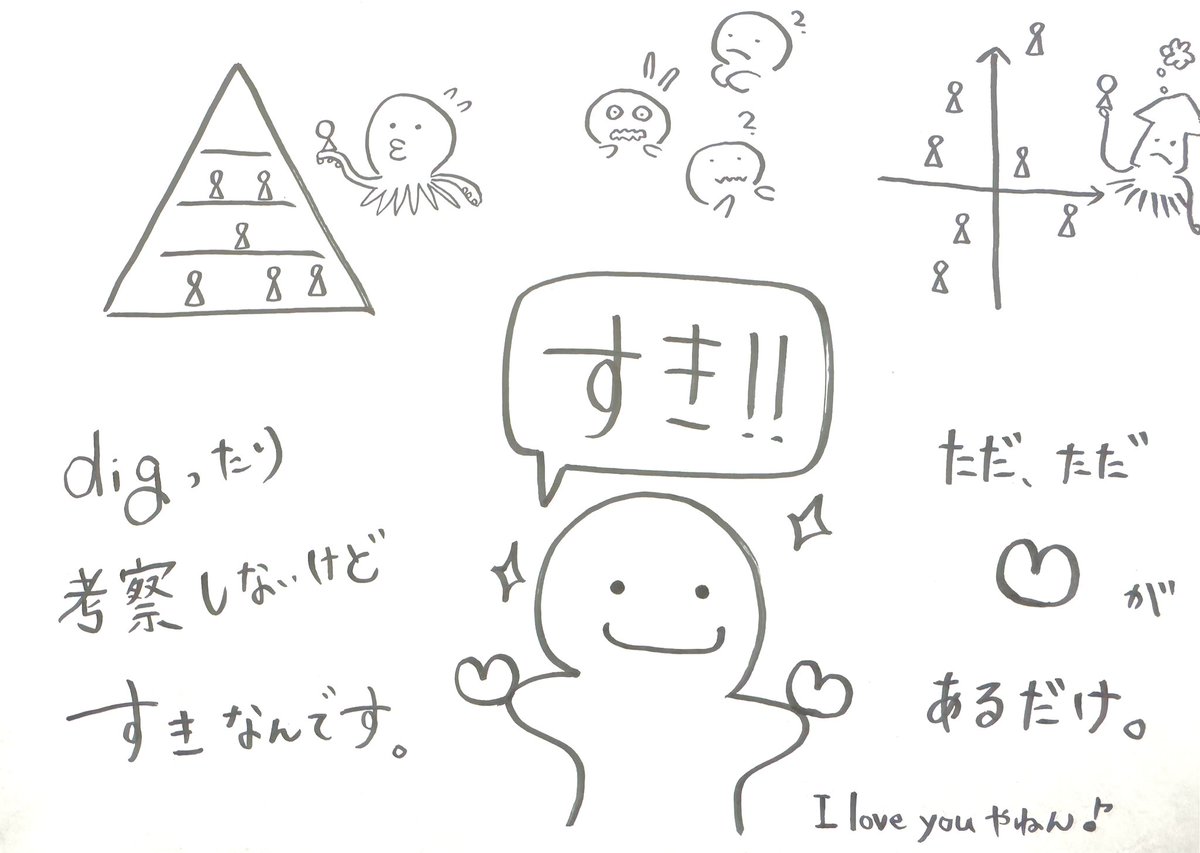 ?
?
すき!!
digったり
考察しないけど
すきなんです。
ただ、ただ
♡が
あるだけ。
I love youやねん♪